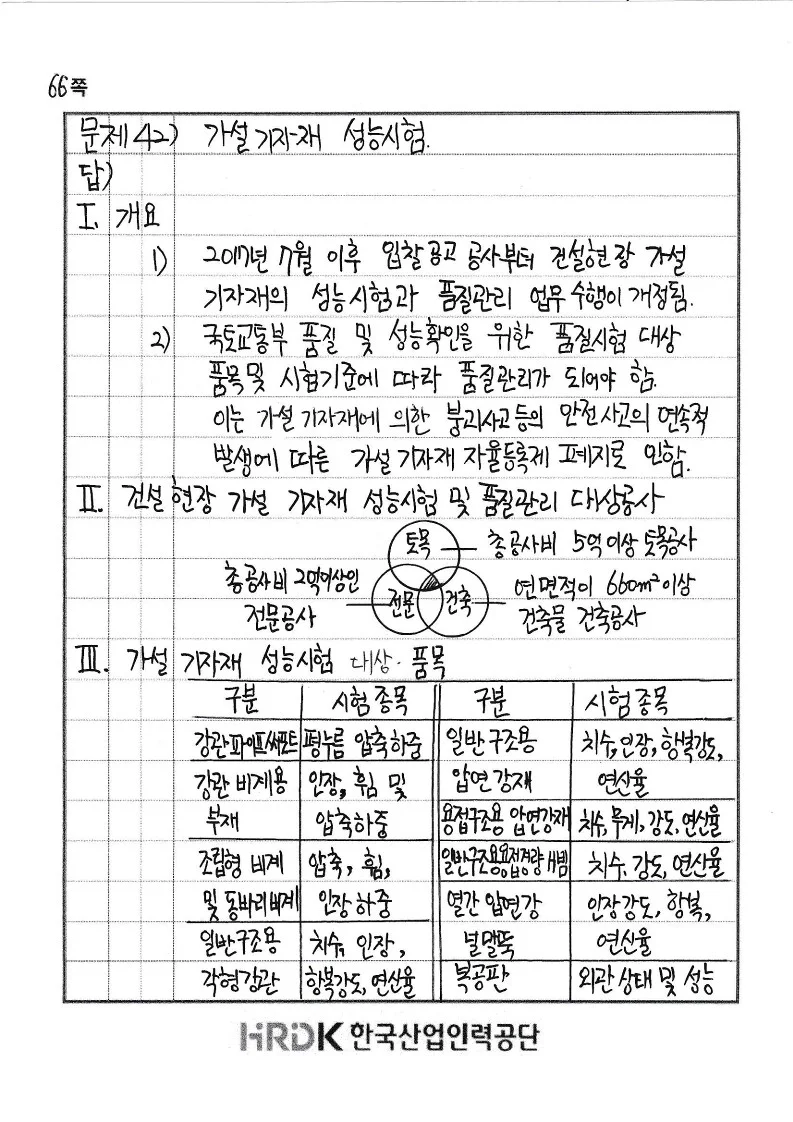 66쪽
문제 42) 가설기자재 성능시험.
답)
I. 개요
1) 2017년 7월 이후 입찰공고 공사부터 건설현장 가설
기자재의 성능시험과 품질관리 업무수행이 개정됨.
2) 국토교통부 품질 및 성능확인을 위한 품질시험 대상
품목및 시험기준에 따라 품질관리가 되어야 함.
이는 가설기자재에 의한 붕괴사고등의 안전사고의 연속적
발생에 따른 가설기자재 자율등록제 폐지로 인함.
II. 건설현장 가설 기자재 성능시험 및 품질관리 대상공사
토목 총공사비 5억이상 토목공사
총공사비 2억이상인 전문공사 전문
건축 연면적이 660m² 이상 건축물 건축공사
III. 가설 기자재 성능시험 대상·품목
구분 시험종목 구분 시험종목
강관파이프써포트 평누름 압축하중 일반구조용 치수,인장,항복강도,
강관 비계용 인장, 휨 및 압연강재 연신율
부재 압축하중 용접구조용 압연강재 치수,무게,강도,연신율
조립형 비계 압축, 휨, 일반구조용용접경량H빔 치수,강도,연신율
및 동바리비계 인장하중 열간압연강 인장강도, 항복,
일반구조용 치수, 인장, 널말뚝 연신율
각형강관 항복강도,연신율 복공판 외관상태 및 성능
HRDK 한국산업인력공단